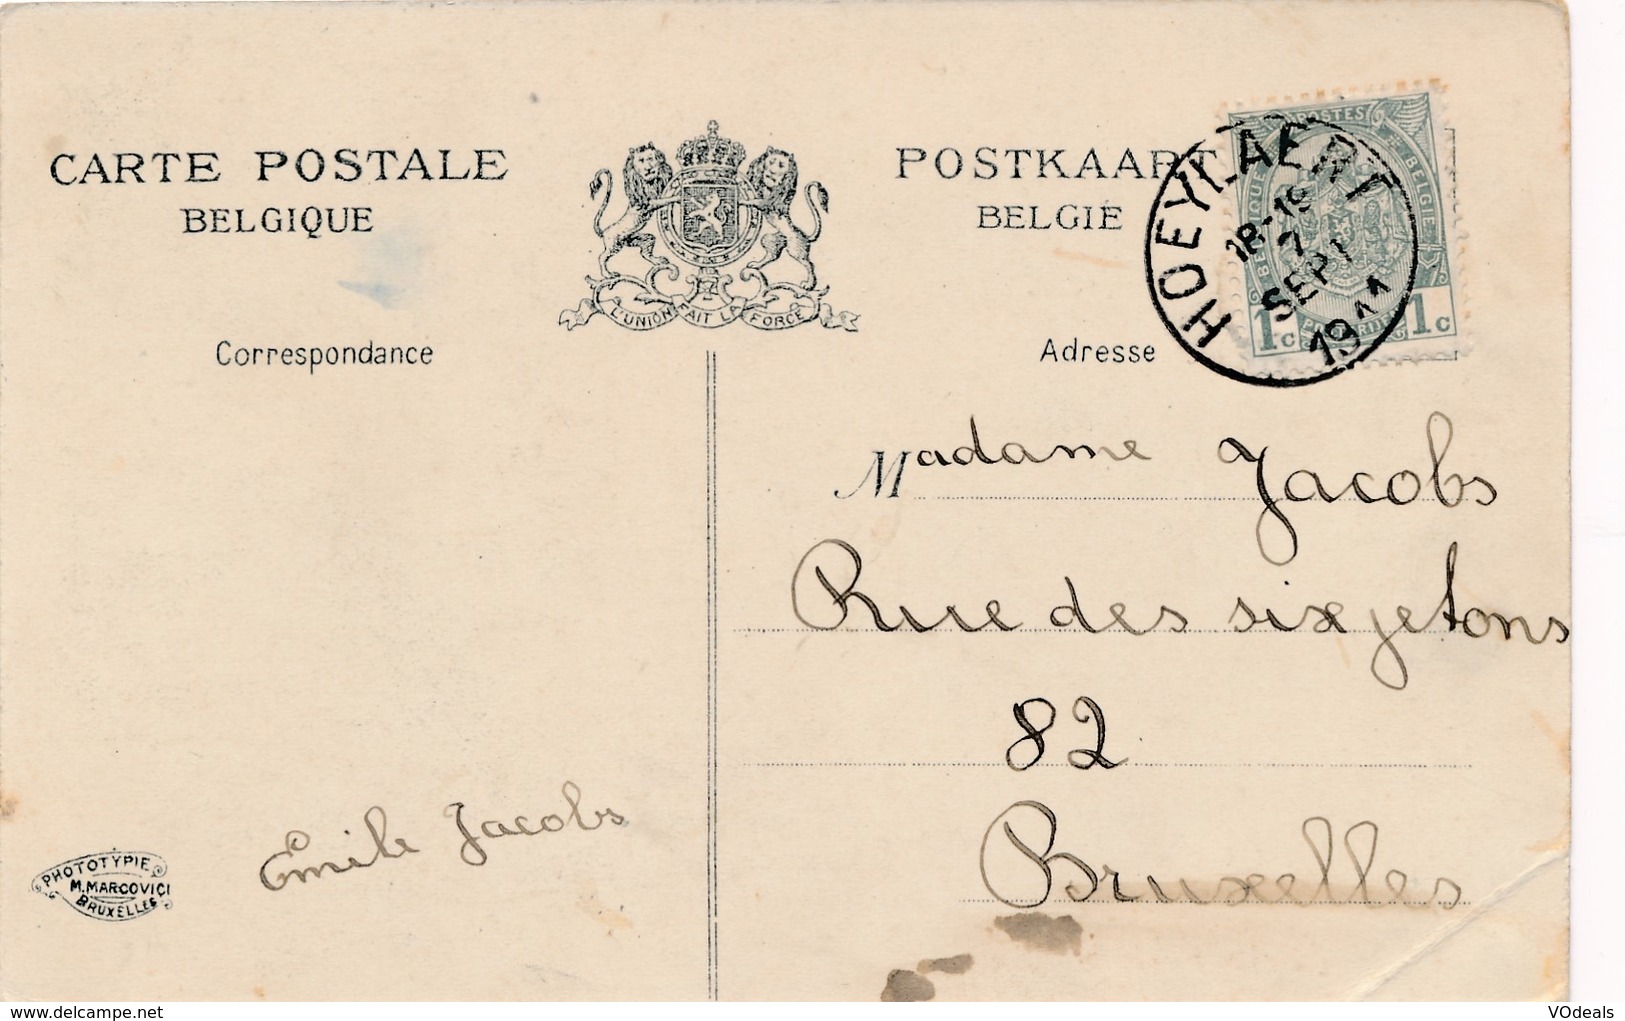 CARTE POSTALE
BELGIQUE
POSTKAART
BELGIË
L'UNION FAIT LA FORCE
Correspondance
Adresse
HOEYLAERT
18-19
7
SEPT
1911
POSTES
BELGIQUE
BELGIË
1c
1c
Madame Jacobs
Rue des six jetons
82
Bruxelles
Emile Jacobs
PHOTOTYPIE
M. MARCOVICI
BRUXELLES
VOdeals